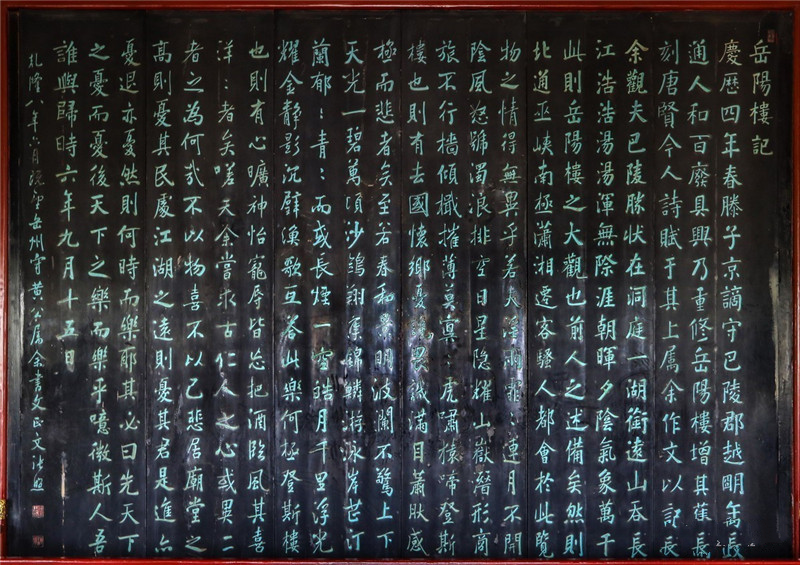 岳陽樓記
慶歷四年春滕子京謫守巴陵郡越明年
通人和百廢具興乃重修岳陽樓增其舊
刻唐賢今人詩賦于其上屬余作文以記
余觀夫巴陵勝狀在洞庭一湖銜遠山吞長
江浩浩湯湯渾無際涯朝暉夕陰氣象萬千
此則岳陽樓之大觀也前人之述備矣然則
北通巫峽南極瀟湘遷客騷人都會於此覽
物之情得無異乎若夫淫雨霏:連月不開
陰風怒號濁浪排空日星隱耀山嶽潛形商
旅不行檣傾檝摧薄莫冥:虎嘯猿啼登斯
樓也則有去國懷鄉憂讒畏譏滿目蕭然感
極而悲者矣至若春和景明波瀾不驚上下
天光一碧萬頃沙鷗翔集錦鱗游泳岸芷汀
蘭郁:青:而或長煙一空皓月千里浮光
耀金靜影沉壁漁歌互答此樂何極登斯樓
也則有心曠神怡寵辱皆忘把酒臨風其喜
洋:者矣嗟夫余嘗求古仁人之心或異二
者之為何哉不以物喜不以己悲居廟堂之
高則憂其民處江湖之遠則憂其君是進亦
憂退亦憂然則何時而樂耶其必曰先天下
之憂而憂後天下之樂而樂乎噫微斯人吾
誰與歸時六年九月十五日
乾隆八年六月岳州守黃公屬余書文正文張照